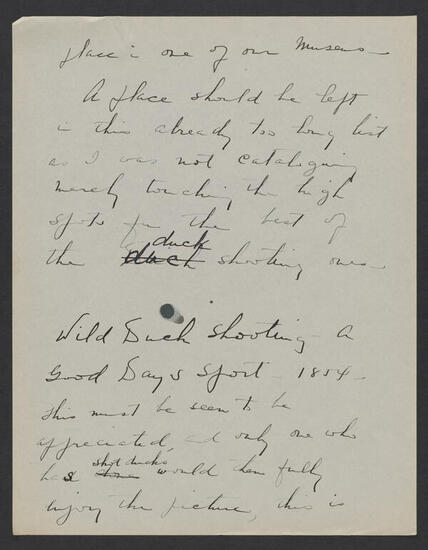 place in one of our Museums—
A place should be left
in this already too long list
as I was not cataloging
merely touching the high
spots for the best of
the duck shooting ones—
Wild Duck Shooting — A
Good Day's Sport — 1854 —
This must be seen to be
appreciated, and only one who
has shot ducks would then fully
enjoy the picture, this is